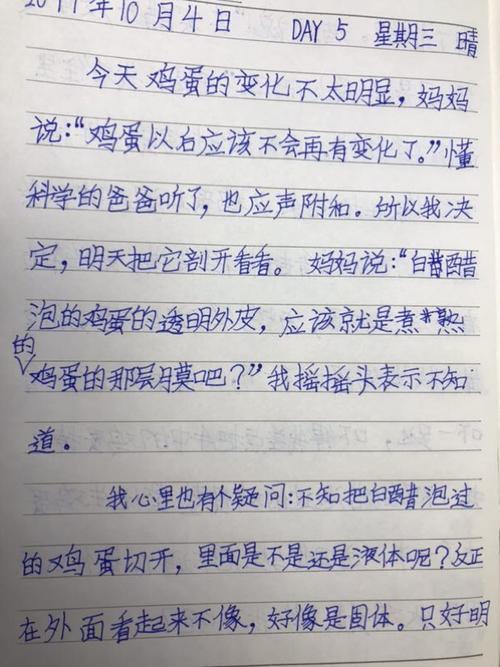 2017年10月4日 DAY 5 星期三 晴
今天鸡蛋的变化不太明显，妈妈
说：“鸡蛋以后应该不会再有变化了。”懂
科学的爸爸听了，也应声附和。所以我决
定，明天把它剖开看看。妈妈说：“白醋
泡的鸡蛋的透明外皮，应该就是煮熟
的鸡蛋的那层膜吧？”我摇摇头表示不知
道。
我心里也有个疑问：不知把白醋泡过
的鸡蛋切开，里面是不是还是液体呢？反正
在外面看起来不像，好像是固体。只好明